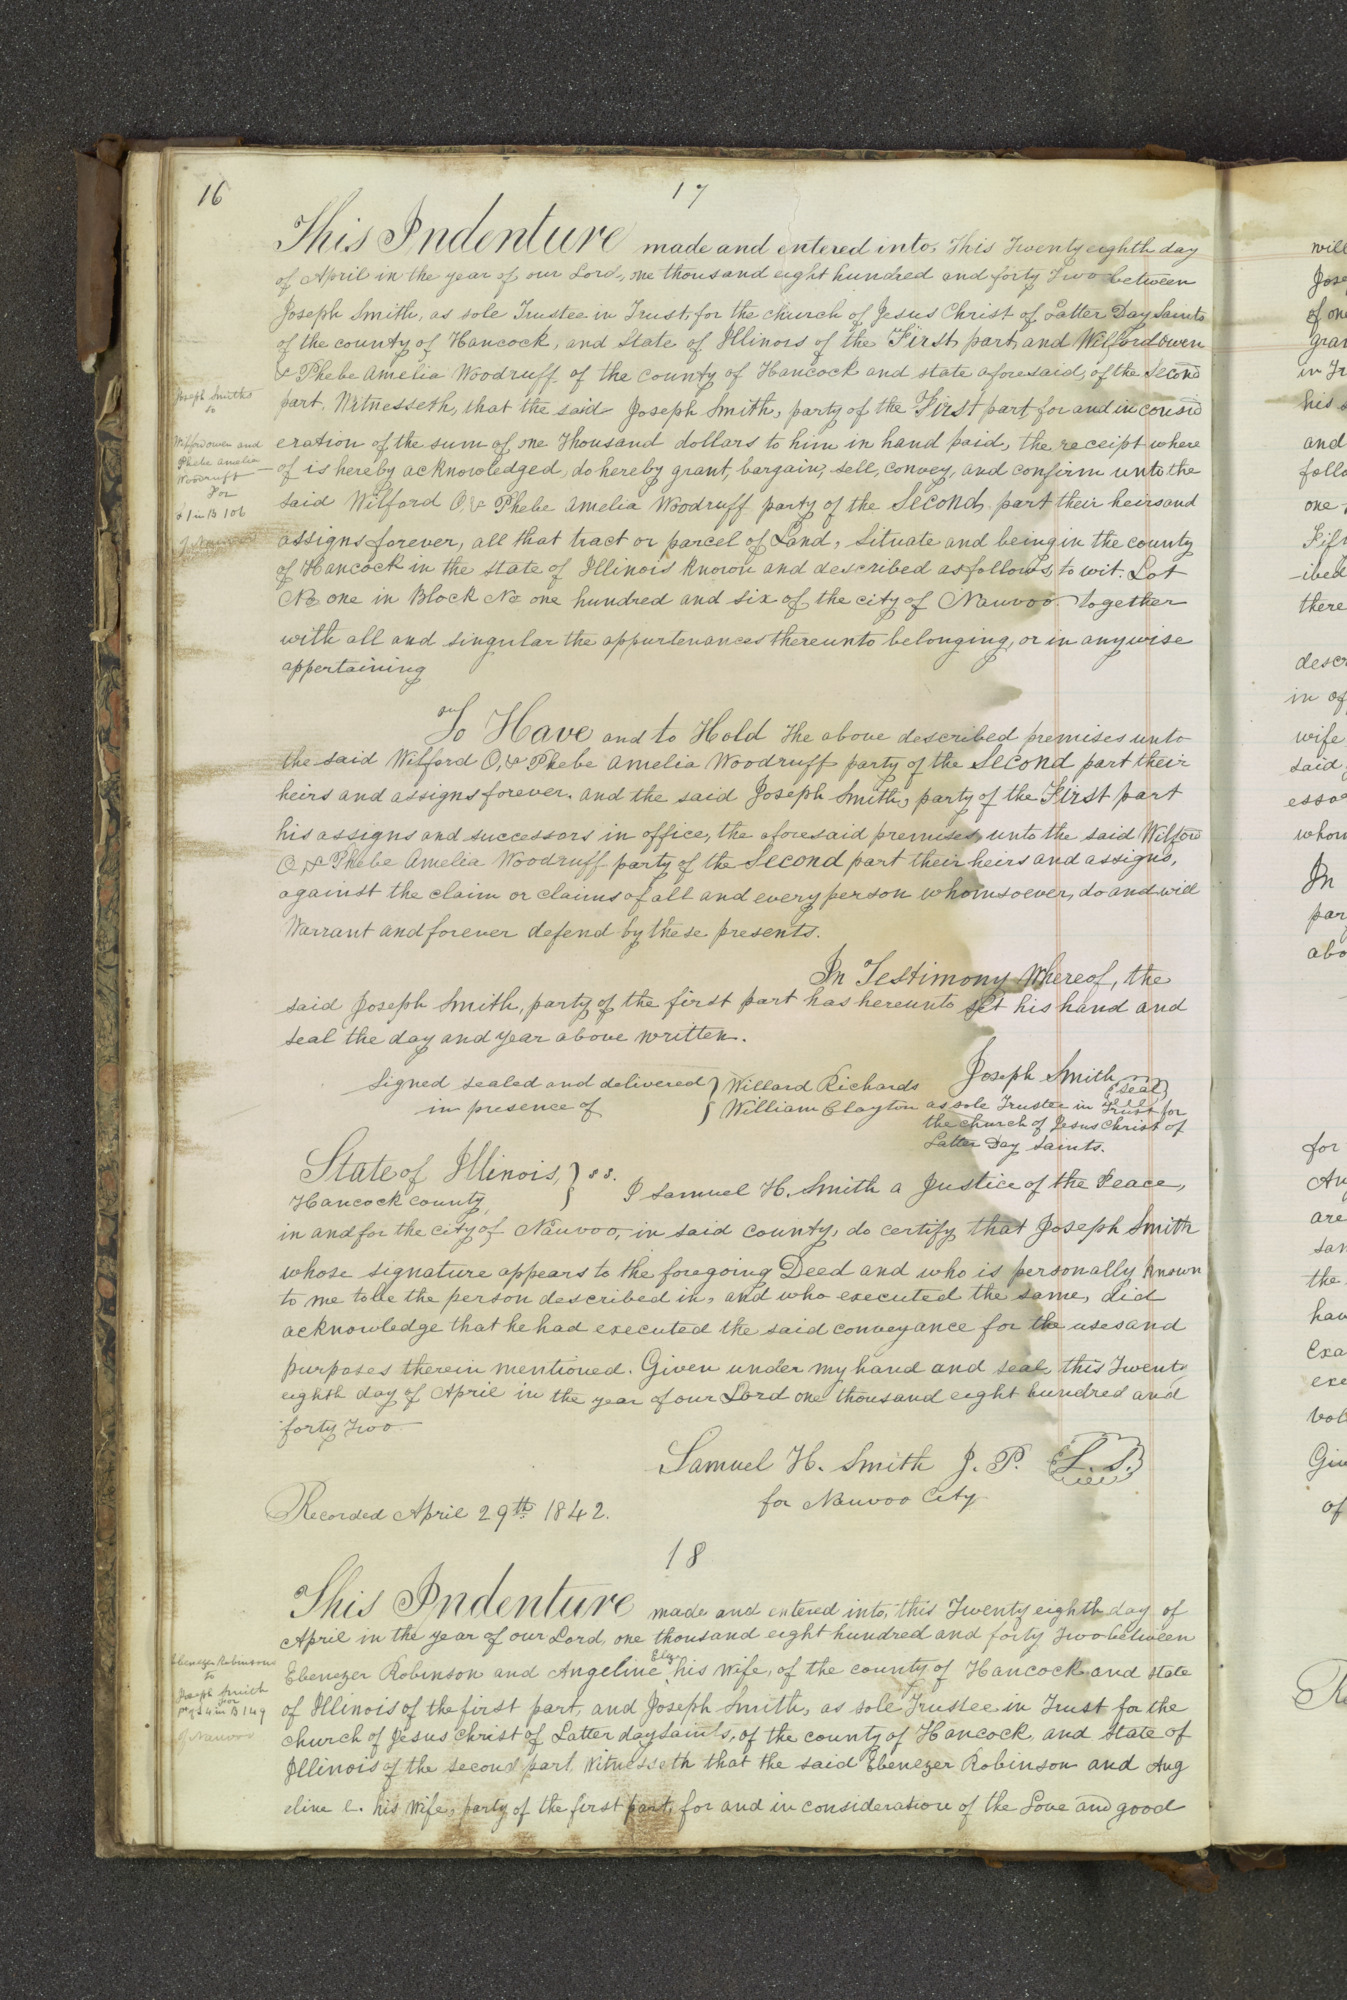 16
17
This Indenture made and entered into, This Twenty eighth day
of April in the year of our Lord, one thousand eight hundred and forty Two between
Joseph Smith, as sole Trustee in Trust, for the church of Jesus Christ of Latter Day Saints
of the county of Hancock, and State of Illinois of the First part, and Wilford owen
& Phebe Amelia Woodruff of the county of Hancock and state aforesaid, of the Second
part. Witnesseth, that the said Joseph Smith, party of the First part, for and in consid
eration of the sum of one Thousand dollars to him in hand paid, the receipt where
of is hereby acknowledged, do hereby grant, bargain, sell, convey, and confirm unto the
said Wilford O. & Phebe Amelia Woodruff party of the Second part their heirs and
assigns forever, all that tract or parcel of Land, Situate and being in the county
of Hancock in the State of Illinois known and described as follows, to wit. Lot
No one in Block No one hundred and six of the city of Nauvoo. Together
with all and singular the appurtenances thereunto belonging, or in any wise
appertaining
Joseph Smiths
to
Wilford owen and
Phebe amelia
Woodruff
For
1 in B 106
of Nauvoo
To Have and to Hold The above described premises unto
the said Wilford O. & Phebe Amelia Woodruff party of the Second part their
heirs and assigns forever. and the said Joseph Smith, party of the First part
his assigns and successors in office, the aforesaid premises, unto the said Wilford
O. & Phebe Amelia Woodruff party of the Second part their heirs and assigns,
against the claim or claims of all and every person whomsoever, do and will
Warrant and forever defend by these presents.
In Testimony Whereof, the
said Joseph Smith, party of the first part has hereunto set his hand and
seal the day and year above written.
Signed sealed and delivered } Willard Richards Joseph Smith seal
in presence of } William Clayton as sole Trustee in Trust for
the church of Jesus Christ of
Latter Day Saints.
State of Illinois, } s s.
Hancock county, I Samuel H. Smith a Justice of the Peace,
in and for the city of Nauvoo, in said county, do certify that Joseph Smith
whose signature appears to the foregoing Deed and who is personally known
to me to be the person described in, and who executed the same, did
acknowledge that he had executed the said conveyance for the uses and
purposes therein mentioned. Given under my hand and seal, this Twenty
eighth day of April in the year of our Lord one thousand eight hundred and
forty Two
Samuel H. Smith J. P. L. S.
for Nauvoo City
Recorded April 29th 1842.
18
This Indenture made and entered into, this Twenty eighth day of
April in the year of our Lord, one thousand eight hundred and forty Two between
Ebenezer Robinson and Angeline Eliza his wife, of the county of Hancock and state
of Illinois of the first part, and Joseph Smith, as sole Trustee in Trust for the
church of Jesus Christ of Latter day saints, of the county of Hancock, and State of
Illinois of the second part Witnesseth that the said Ebenezer Robinson and Ang
eline E. his Wife, party of the first part, for and in consideration of the Love and good
Ebenezer Robinsons
to
Joseph Smith
For
4 in B 149
of Nauvoo